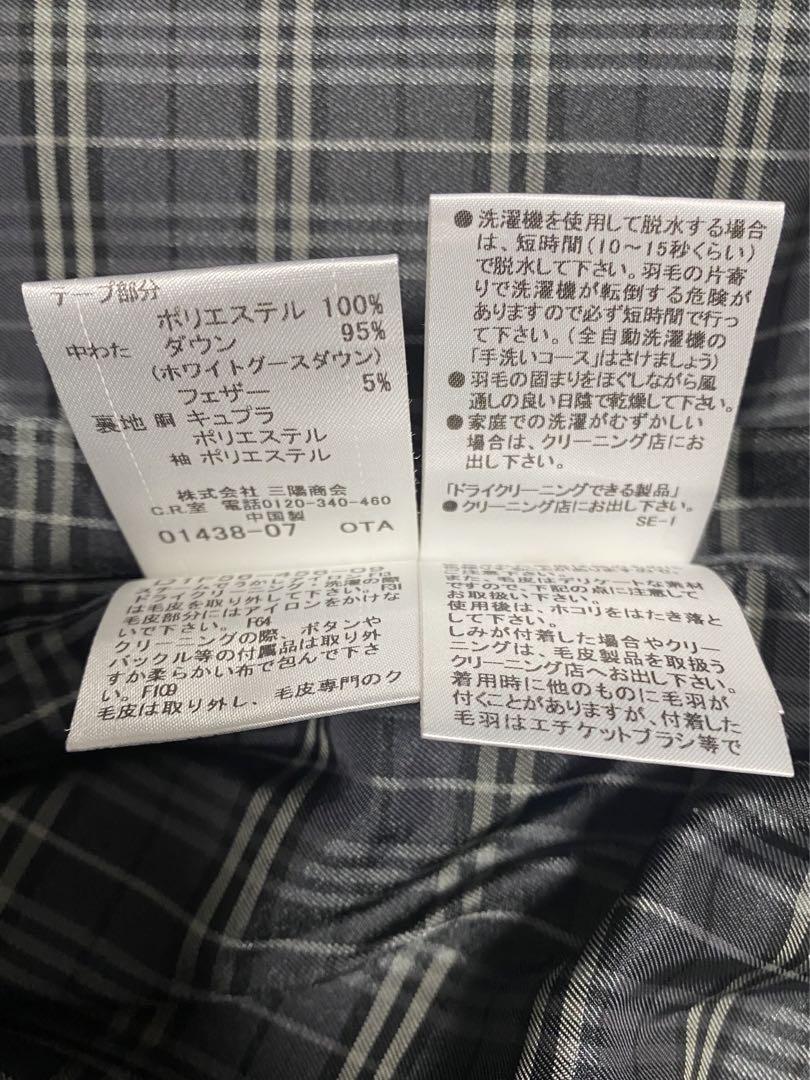 テープ部分
ポリエステル 100%
中わた ダウン 95%
(ホワイトグースダウン)
フェザー 5%
裏地 胴 キュプラ
ポリエステル
袖 ポリエステル
株式会社 三陽商会
C.R.室 電話0120-340-460
中国製
01438-07 OTA
ドライクリーニング、洗濯の際
は毛皮を取り外して下さい。 F31
毛皮部分にはアイロンをかけな
いで下さい。 F64
クリーニングの際、ボタンや
バックル等の付属品は取り外
すか柔らかい布で包んで下さ
い。F109
毛皮は取り外し、毛皮専門のク
●洗濯機を使用して脱水する場合
は、短時間(10〜15秒くらい)
で脱水して下さい。羽毛の片寄
りで洗濯機が転倒する危険が
ありますので必ず短時間で行っ
て下さい。(全自動洗濯機の
「手洗いコース」はさけましょう)
●羽毛の固まりをほぐしながら風
通しの良い日陰で乾燥して下さい。
●家庭での洗濯がむずかしい
場合は、クリーニング店にお
出し下さい。
「ドライクリーニングできる製品」
●クリーニング店にお出し下さい。
SE-I
また、毛皮はデリケートな素材
ですので下記の点に注意して
お取扱い下さい。
使用後は、ホコリをはたき落と
して下さい。
しみが付着した場合やクリー
ニングは、毛皮製品を取扱う
クリーニング店へお出し下さい。
着用時に他のものに毛羽が
付くことがありますが、付着した
毛羽はエチケットブラシ等で